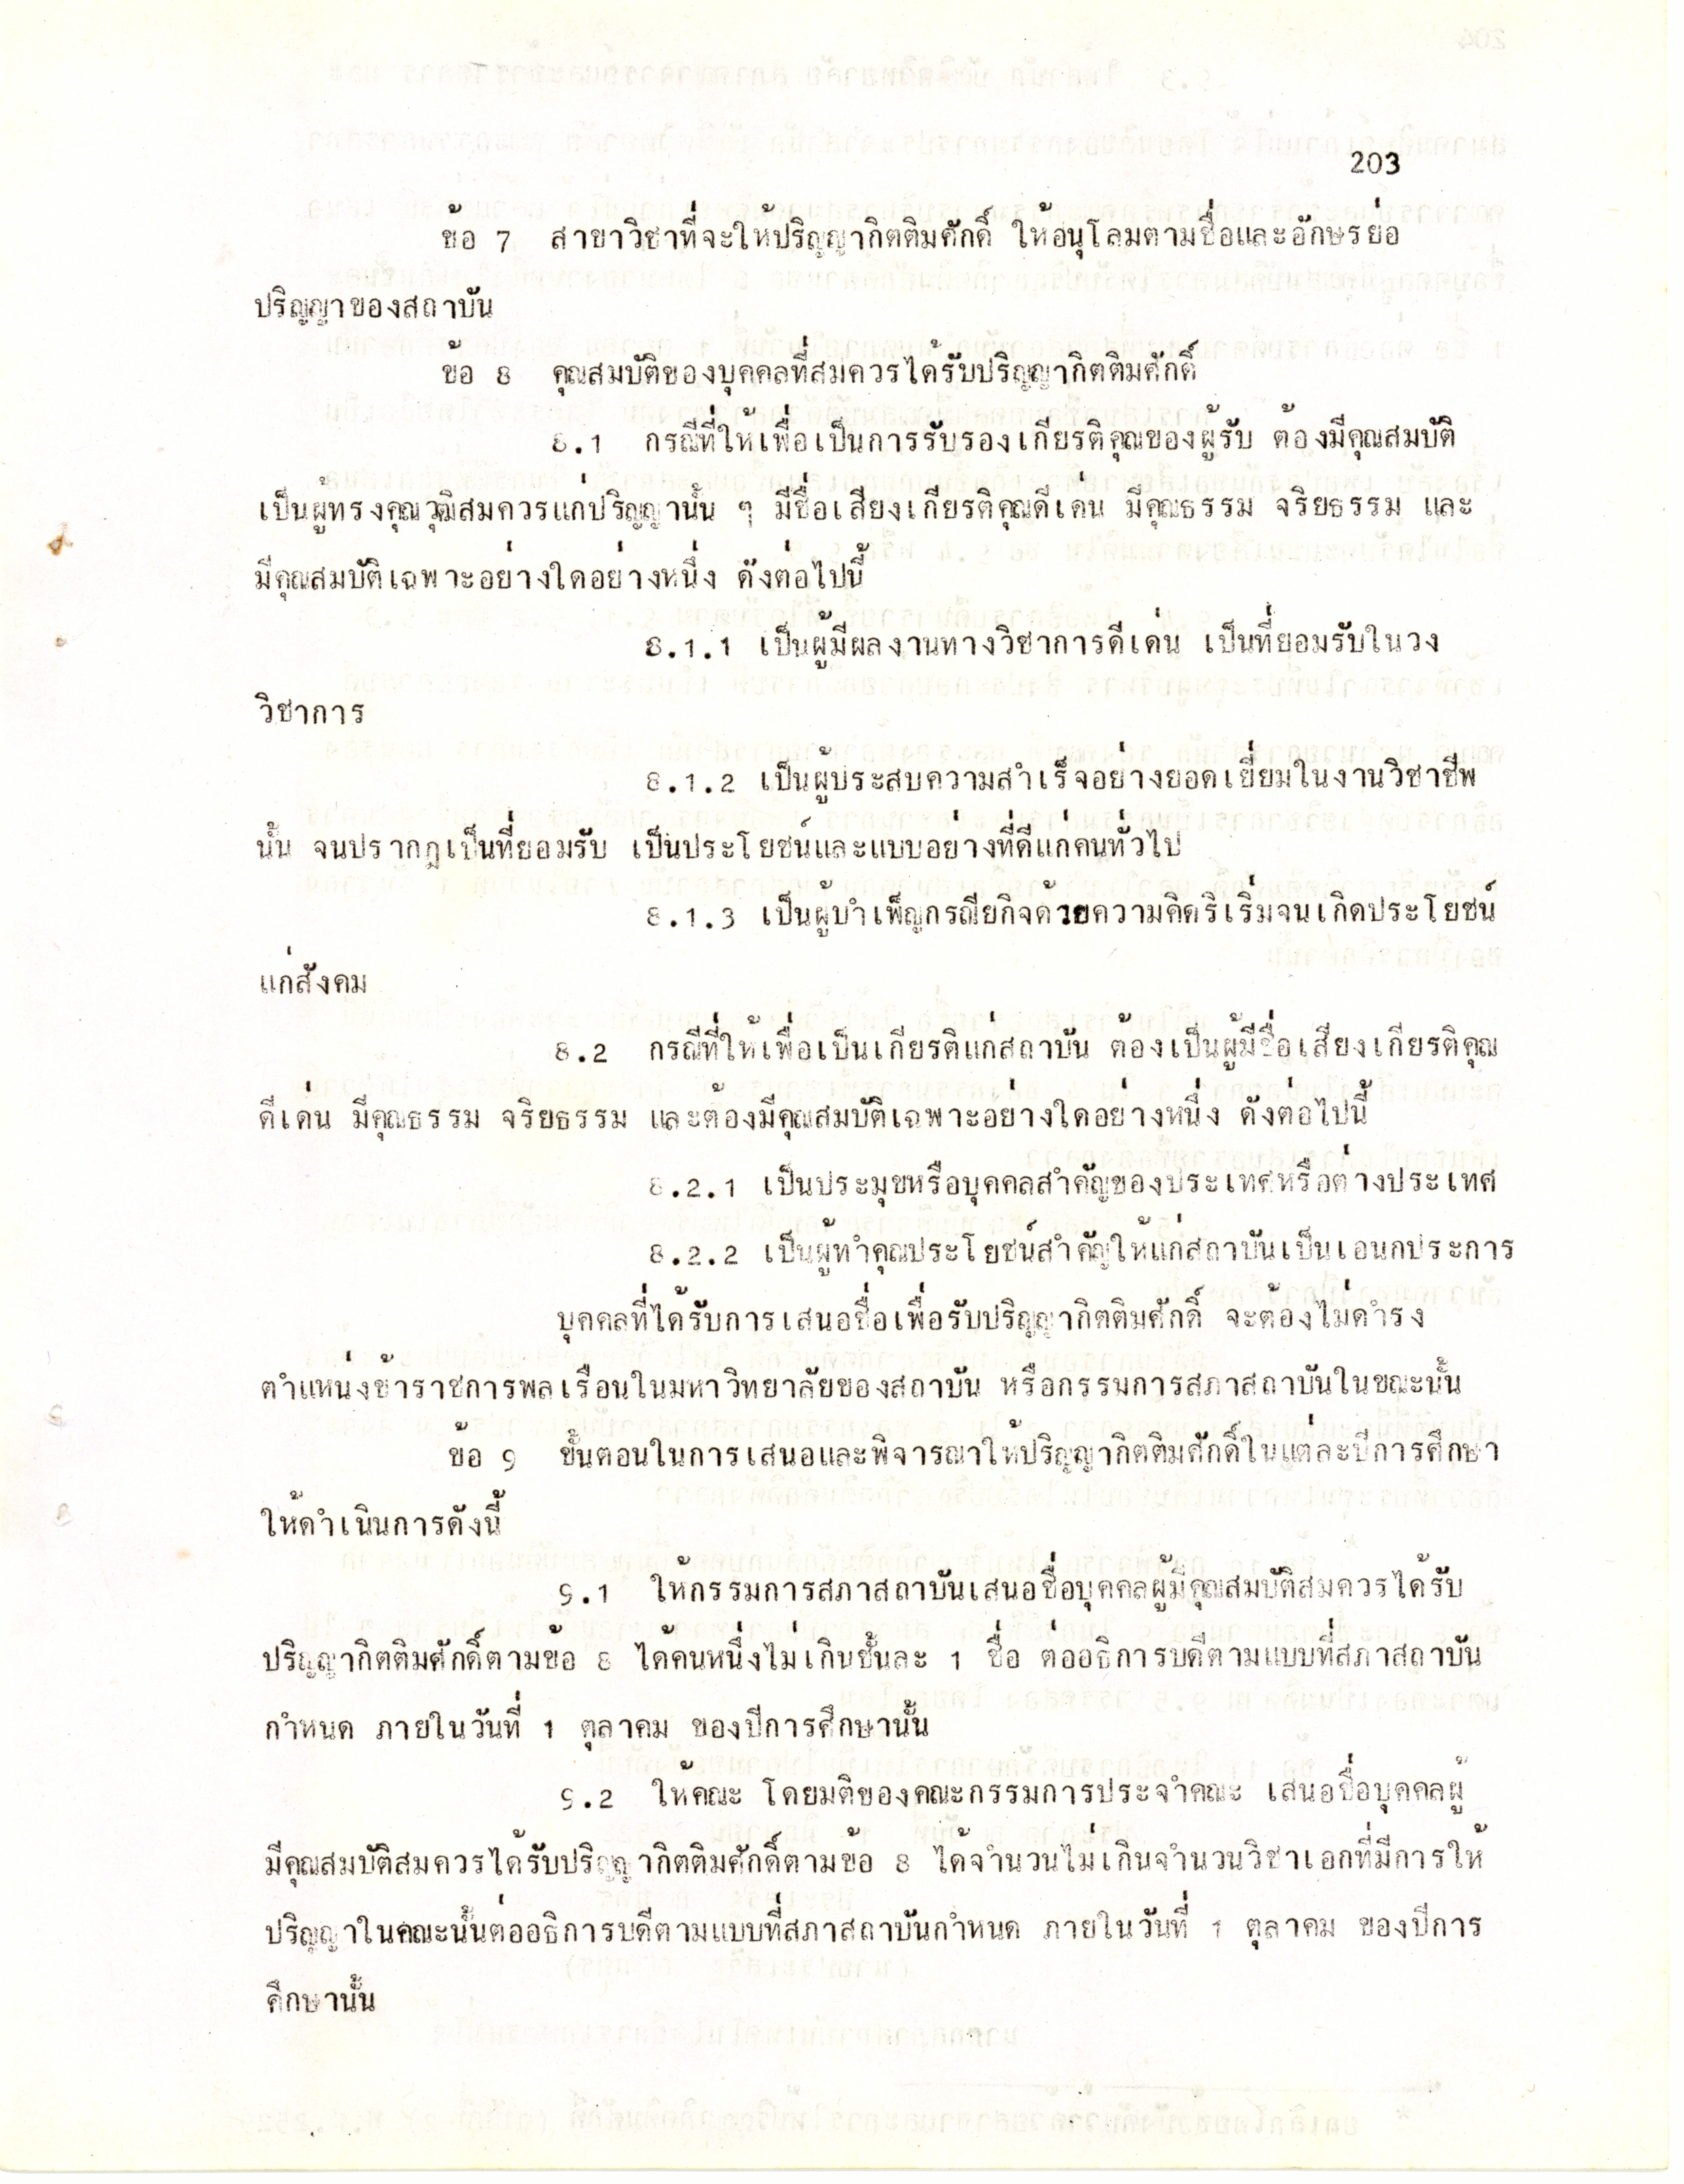 203
ข้อ 7 สาขาวิชาที่จะให้ปริญญากิตติมศักดิ์ ให้อนุโลมตามชื่อและอักษรย่อ
ปริญญาของสถาบัน
ข้อ 8 คุณสมบัติของบุคคลที่สมควรได้รับปริญญากิตติมศักดิ์
8.1 กรณีที่ให้เพื่อเป็นการรับรองเกียรติคุณของผู้รับ ต้องมีคุณสมบัติ
เป็นผู้ทรงคุณวุฒิสมควรแก่ปริญญานั้น ๆ มีชื่อเสียงเกียรติคุณดีเด่น มีคุณธรรม จริยธรรม และ
มีคุณสมบัติเฉพาะอย่างใดอย่างหนึ่ง ดังต่อไปนี้
8.1.1 เป็นผู้มีผลงานทางวิชาการดีเด่น เป็นที่ยอมรับในวง
วิชาการ
8.1.2 เป็นผู้ประสบความสำเร็จอย่างยอดเยี่ยมในงานวิชาชีพ
นั้น จนปรากฎเป็นที่ยอมรับ เป็นประโยชน์และแบบอย่างที่ดีแก่คนทั่วไป
8.1.3 เป็นผู้บำเพ็ญกรณียกิจด้วยความคิดริเริ่มจนเกิดประโยชน์
แก่สังคม
8.2 กรณีที่ให้เพื่อเป็นเกียรติแก่สถาบัน ต้องเป็นผู้มีชื่อเสียงเกียรติคุณ
ดีเด่น มีคุณธรรม จริยธรรม และต้องมีคุณสมบัติเฉพาะอย่างใดอย่างหนึ่ง ดังต่อไปนี้
8.2.1 เป็นประมุขหรือบุคคลสำคัญของประเทศหรือต่างประเทศ
8.2.2 เป็นผู้ทำคุณประโยชน์สำคัญให้แก่สถาบันเป็นเอนกประการ
บุคคลที่ได้รับการเสนอชื่อเพื่อรับปริญญากิตติมศักดิ์ จะต้องไม่ดำรง
ตำแหน่งข้าราชการพลเรือนในมหาวิทยาลัยของสถาบัน หรือกรรมการสภาสถาบันในขณะนั้น
ข้อ 9 ขั้นตอนในการเสนอและพิจารณาให้ปริญญากิตติมศักดิ์ในแต่ละปีการศึกษา
ให้ดำเนินการดังนี้
9.1 ให้กรรมการสภาสถาบันเสนอชื่อบุคคลผู้มีคุณสมบัติสมควรได้รับ
ปริญญากิตติมศักดิ์ตามข้อ 8 ได้คนหนึ่งไม่เกินชั้นละ 1 ชื่อ ต่ออธิการบดีตามแบบที่สภาสถาบัน
กำหนด ภายในวันที่ 1 ตุลาคม ของปีการศึกษานั้น
9.2 ให้คณะ โดยมติของคณะกรรมการประจำคณะ เสนอชื่อบุคคลผู้
มีคุณสมบัติสมควรได้รับปริญญากิตติมศักดิ์ตามข้อ 8 ได้จำนวนไม่เกินจำนวนวิชาเอกที่มีการให้
ปริญญาในคณะนั้นต่ออธิการบดีตามแบบที่สภาสถาบันกำหนด ภายในวันที่ 1 ตุลาคม ของปีการ
ศึกษานั้น